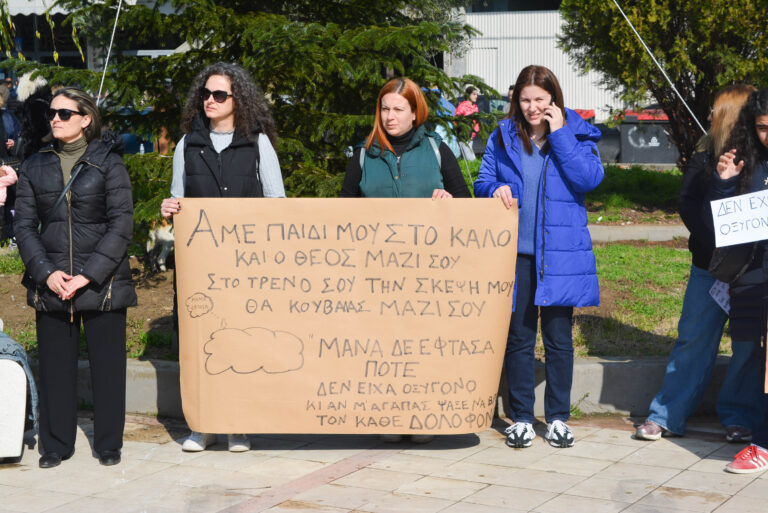 ΑΜΕ ΠΑΙΔΙ ΜΟΥ ΣΤΟ ΚΑΛΟ
ΚΑΙ Ο ΘΕΟΣ ΜΑΖΙ ΣΟΥ
ΣΤΟ ΤΡΕΝΟ ΣΟΥ ΤΗΝ ΣΚΕΨΗ ΜΟΥ
ΘΑ ΚΟΥΒΑΛΑΣ ΜΑΖΙ ΣΟΥ
"ΜΑΝΑ ΔΕ ΕΦΤΑΣΑ
ΠΟΤΕ
ΔΕΝ ΕΙΧΑ ΟΞΥΓΟΝΟ
ΚΙ ΑΝ Μ'ΑΓΑΠΑΣ ΨΑΞΕ ΝΑ Β
ΤΟΝ ΚΑΘΕ ΔΟΛΟΦΟΝ
ΔΕΝ ΕΧΩ
ΟΞΥΓΟΝ